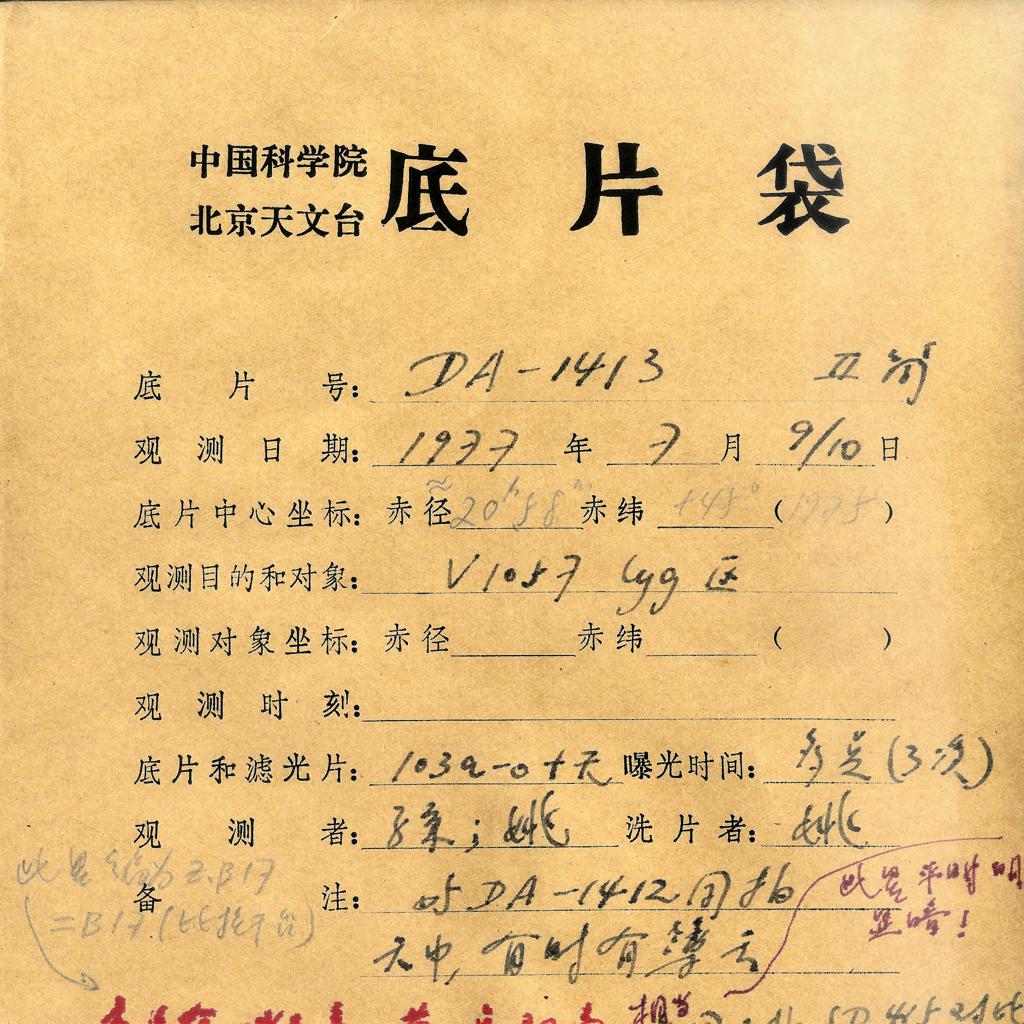 中国科学院
北京天文台
底片袋
底片号: DA-1413 II 筒
观测日期: 1977 年 7 月 9/10 日
底片中心坐标: 赤径 ≈20h58m 赤纬 +45° (1975)
观测目的和对象: V1057 Cyg 区
观测对象坐标: 赤径 赤纬 ( )
观测时刻:
底片和滤光片: 103a-O+无 曝光时间: 多点(3次)
观测者: 孙; 姚 洗片者: 姚
备注: 与DA-1412同拍
天中, 有时有薄云
此星编为Z.B17
=B17
此星平时明
显暗!